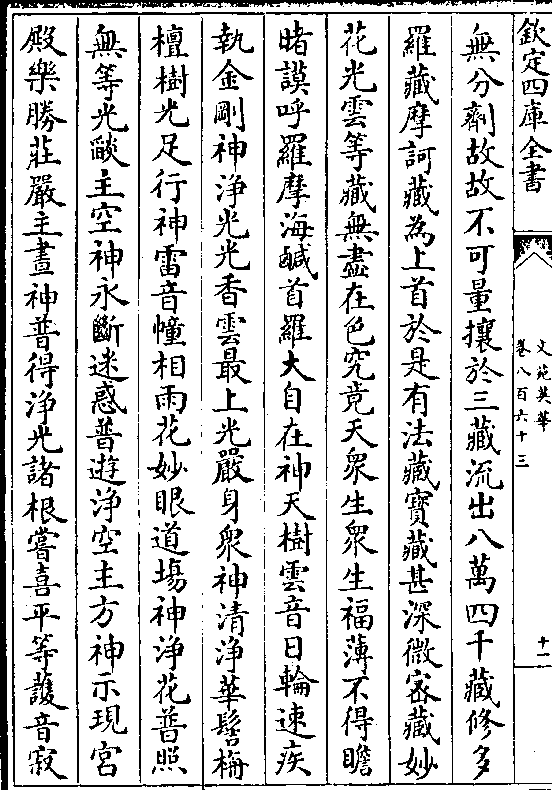 欽定四庫全書
文苑英華
卷八百六十三
十一
無分劑故故不可量攘於三藏流出八萬四千藏修多
羅藏摩訶藏為上首於是有法藏寶藏甚深微宻藏妙
花光雲等藏無盡在色究竟天衆生衆生福薄不得瞻
睹謨呼羅摩海鹹首羅大自在神天樹雲音日輪速疾
執金剛神浄光光香雲最上光嚴身衆神清浄華髻栴
檀樹光足行神雷音幢相雨花妙眼道塲神浄花普照
無等光燄主空神永斷迷惑普遊浄空主方神示現宮
殿樂勝莊嚴主晝神普得浄光諸根嘗喜平等䕶音寂